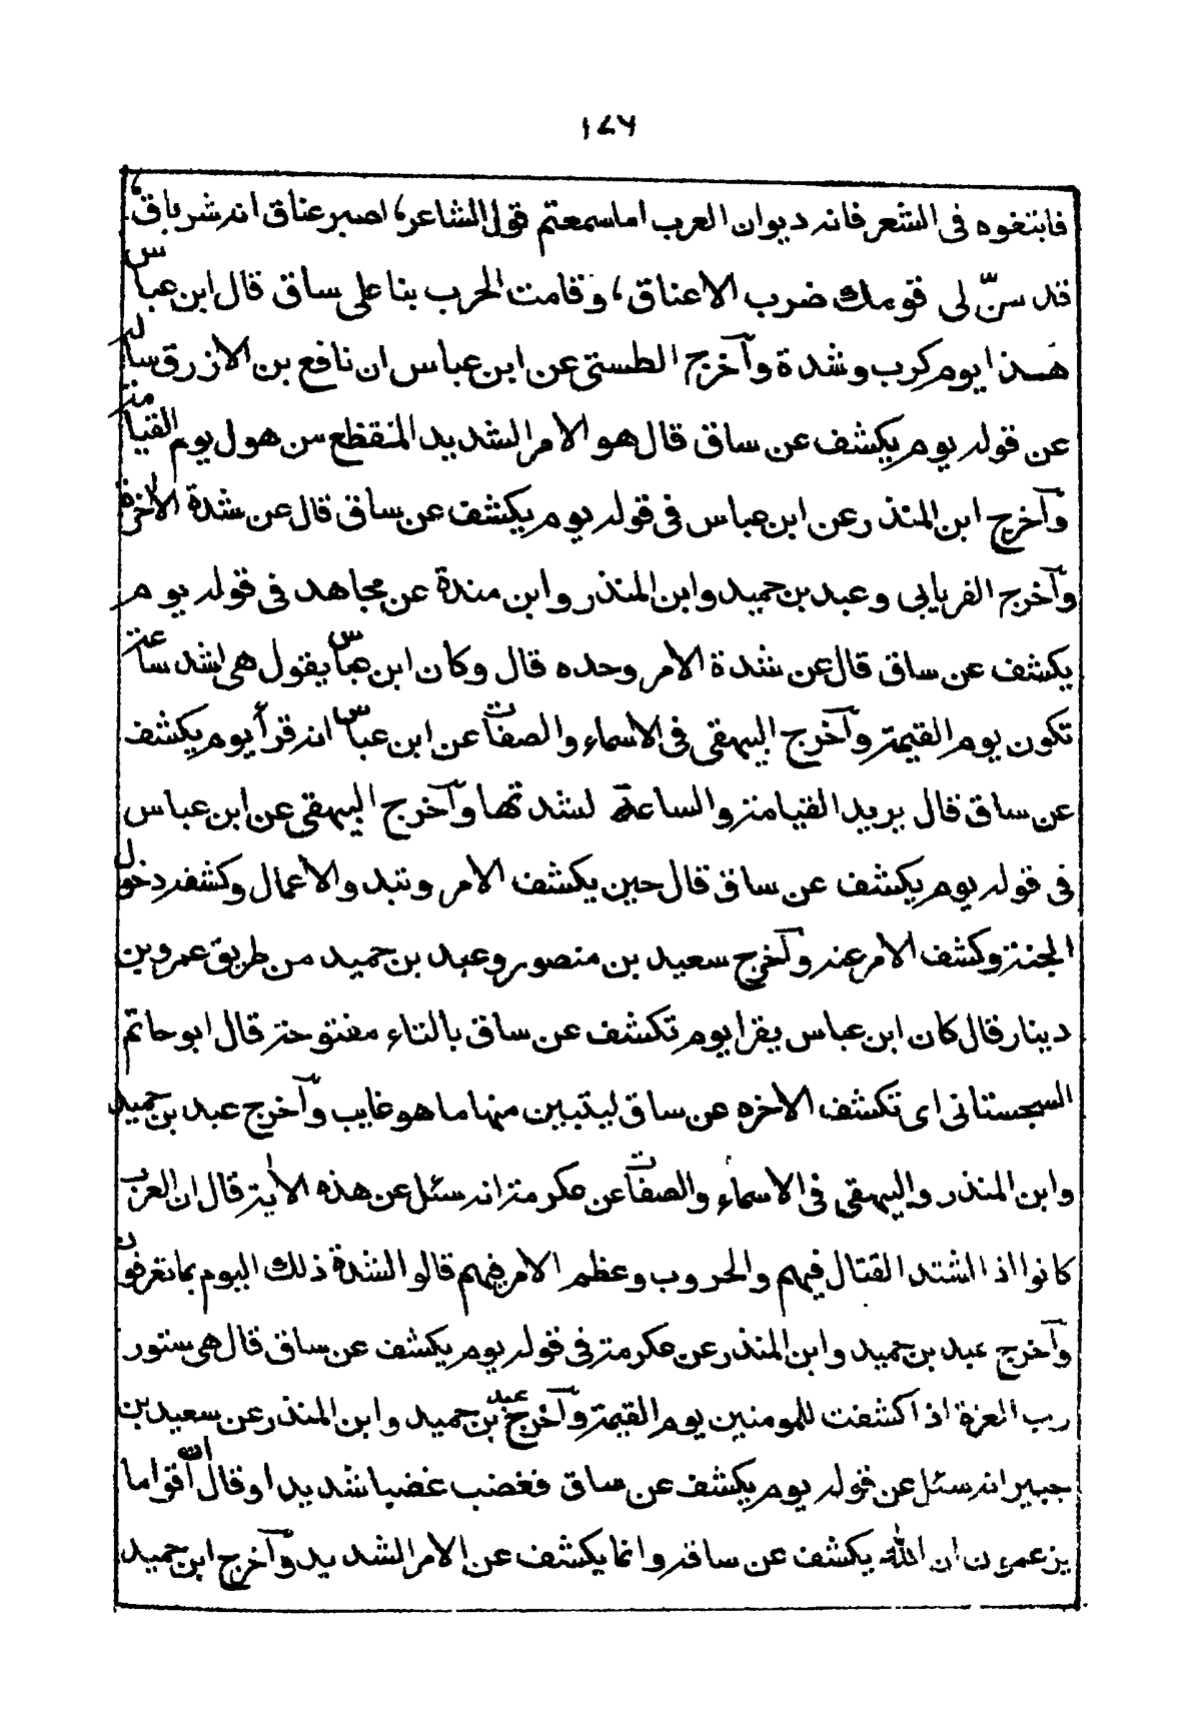 ١٤٦
فابتغوه فى الشعر فانه ديوان العرب اما سمعتم قول الشاعر، اصبر عناق انه شر باق،
قد سنّ لى قومك ضرب الاعناق، وقامت الحرب بنا على ساق قال ابن عباس
هذا يوم كرب وشدة وآخرج الطستى عن ابن عباس ان نافع بن الازرق ساله
عن قوله يوم يكشف عن ساق قال هو الامر الشديد المنقظع من هول يوم القيامة
وآخرج ابن المنذر عن ابن عباس فى قوله يوم يكشف عن ساق قال عن شدة الاخرة
وآخرج الفريابى وعبد بن حميد وابن المنذر وابن مندة عن مجاهد فى قوله يوم
يكشف عن ساق قال عن شدة الامر وحده قال وكان ابن عباس يقول هى اشد ساعة
تكون يوم القيمة وآخرج البيهقى فى الاسماء والصفات عن ابن عباس انه قرأ يوم يكشف
عن ساق قال يريد القيامة والساعة لشدتها وآخرج البيهقى عن ابن عباس
فى قوله يوم يكشف عن ساق قال حين يكشف الامر وتبد والاعمال وكشفه دخول
الجنة وكشف الامر عنه وآخرج سعيد بن منصور وعبد بن حميد من طريق عمرو بن
دينار قال كان ابن عباس يقرا يوم تكشف عن ساق بالتاء مفتوحة قال ابو حاتم
السجستانى اى تكشف الاخره عن ساق ليتبين منها ما هو غايب وآخرج عبد بن حميد
وابن المنذر والبيهقى فى الاسماء والصفات عن عكرمة انه سئل عن هذه الاية قال ان العرب
كانوا اذا اشتد القتال فيهم والحروب وعظم الامر فيهم قالوا الشدة ذلك اليوم بما تعرفون
وآخرج عبد بن حميد وابن المنذر عن عكرمة فى قوله يوم يكشف عن ساق قال هى ستور
رب العزة اذا كشفت للمومنين يوم القيمة وآخرج عبد بن حميد وابن المنذر عن سعيد بن
جبير انه سئل عن قوله يوم يكشف عن ساق فغضب غضبا شديدا وقال ان اقواما
يزعمون ان الله يكشف عن ساقه وانما يكشف عن الامر الشديد وآخرج ابن حميد